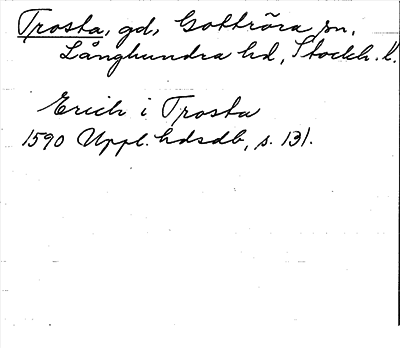 Trosta, gd, Gottröra sn,
Långhundra hd, Stockh. l.
Erich i Trosta
1590 Uppl. hdsdb, s. 131.